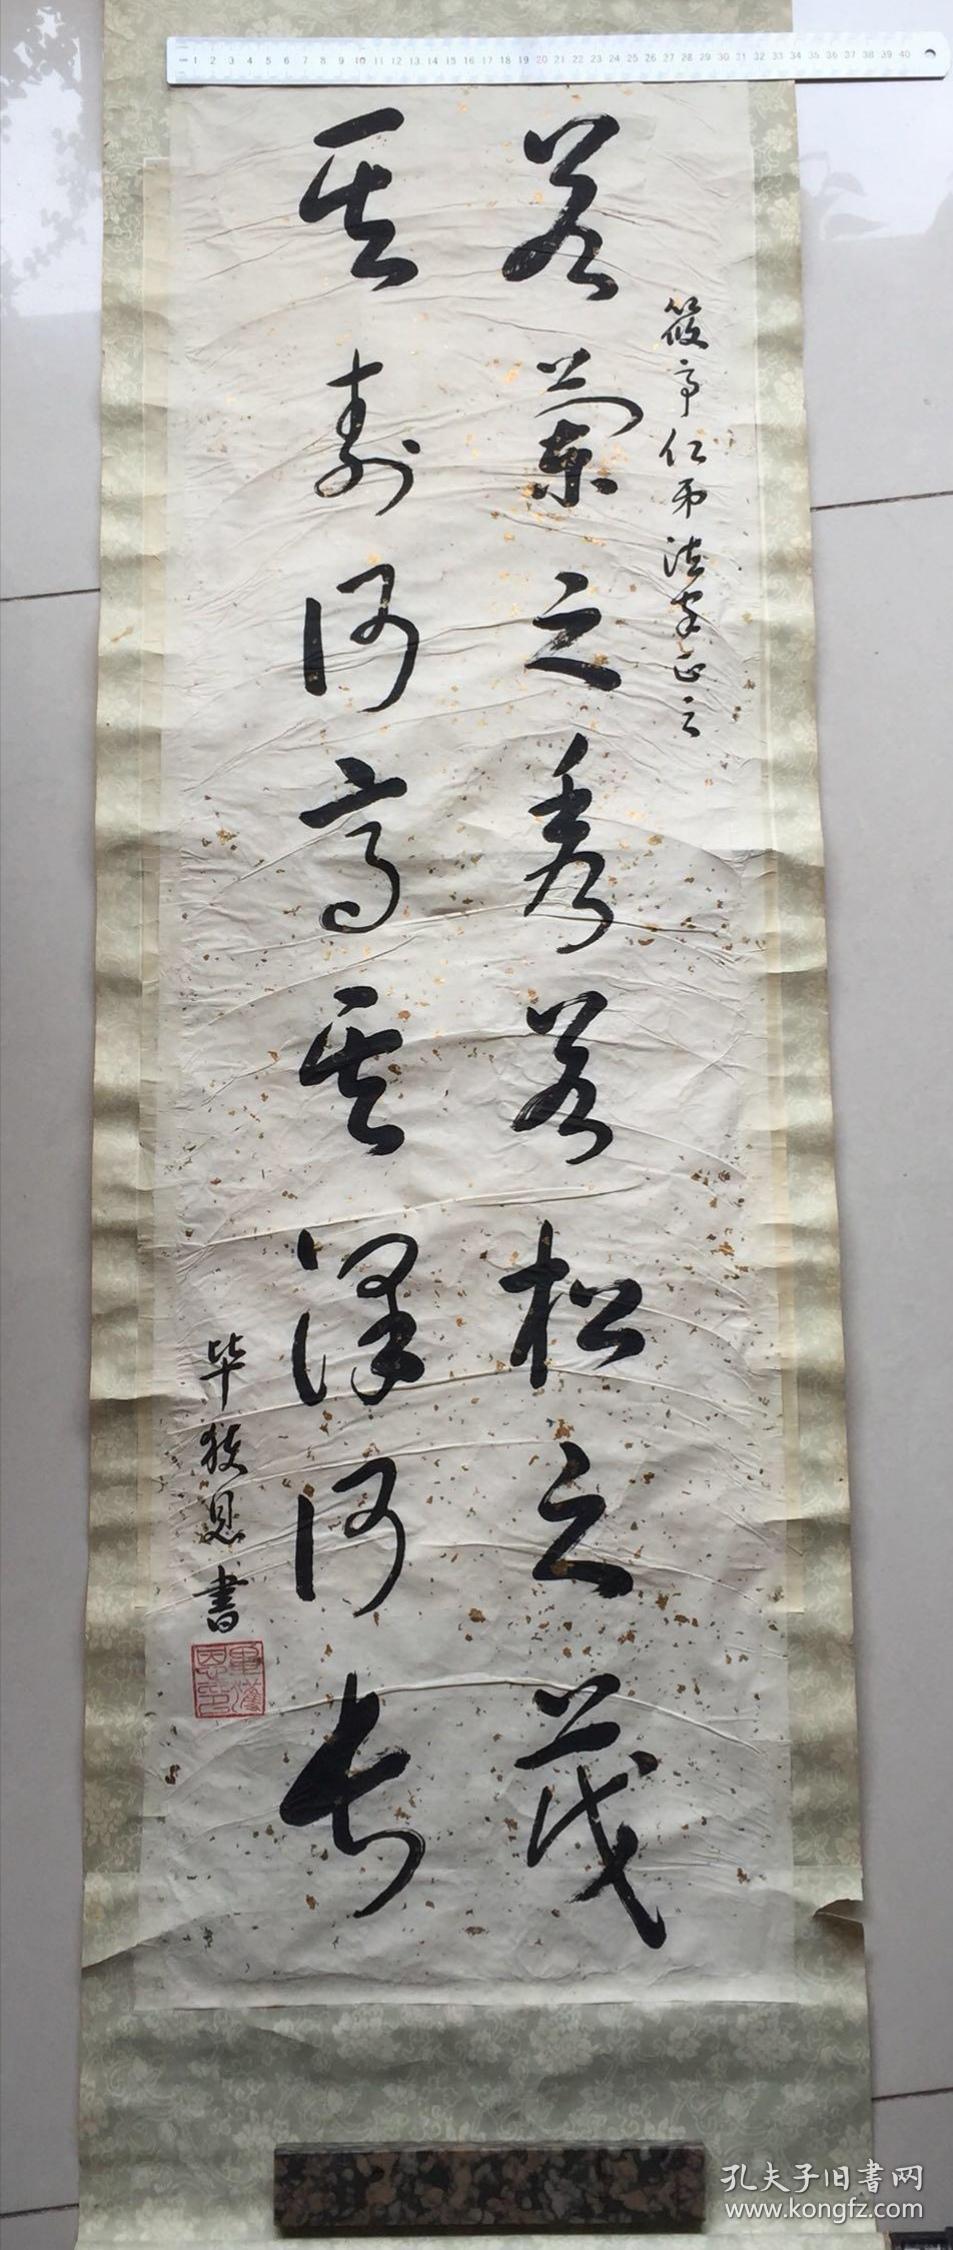 1 2 3 4 5 6 7 8 9 10 11 12 13 14 15 16 17 18 19 20 21 22 23 24 25 26 27 28 29 30 31 32 33 34 35 36 37 38 39 40
筱亭仁弟法家正之
若蘭之秀若松之茂
其壽何高其澤何長
毕恩書
孔夫子旧書网
www.kongfz.com